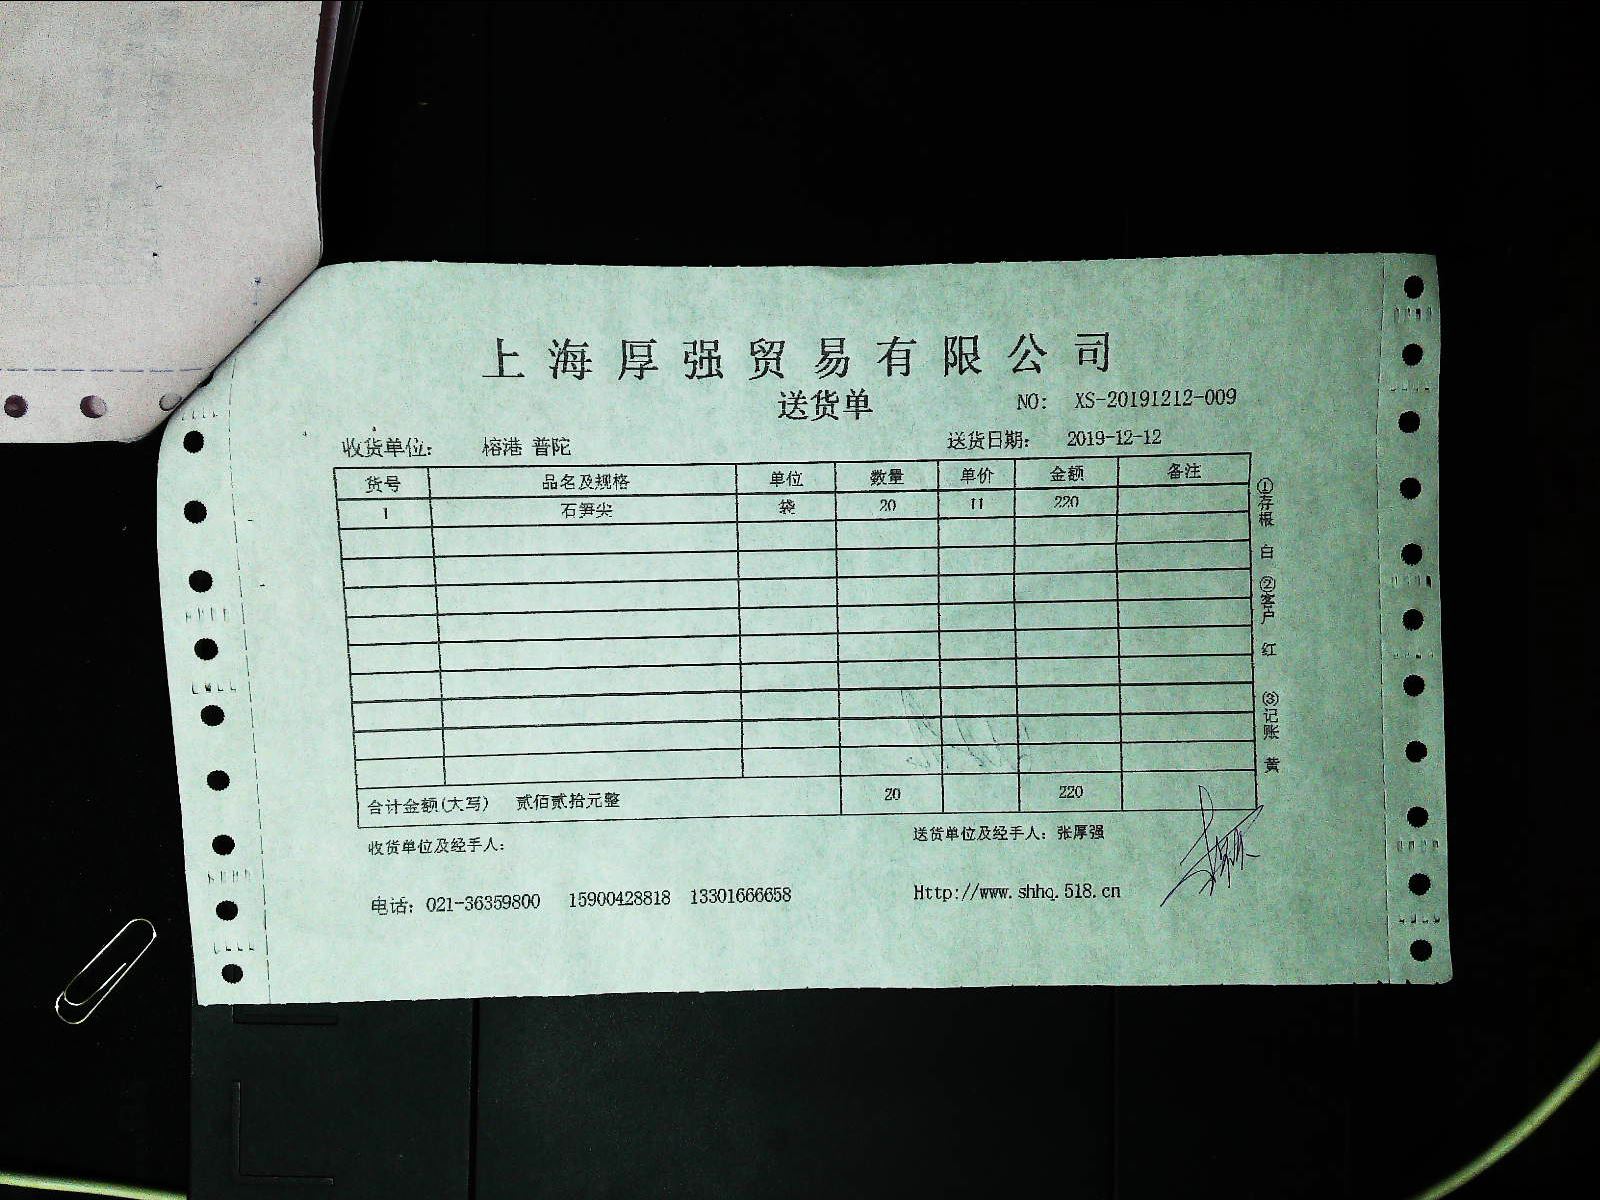 上海厚强贸易有限公司
送货单
NO: XS-20191212-009
收货单位: 榕港 普陀 送货日期: 2019-12-12
货号 品名及规格 单位 数量 单价 金额 备注
1 石笋尖 袋 20 11 220
合计金额(大写) 贰佰贰拾元整 20 220
收货单位及经手人: 送货单位及经手人: 张厚强
电话: 021-36359800 15900428818 13301666658 Http://www.shhq.518.cn
①存根 白 ②客户 红 ③记账 黄